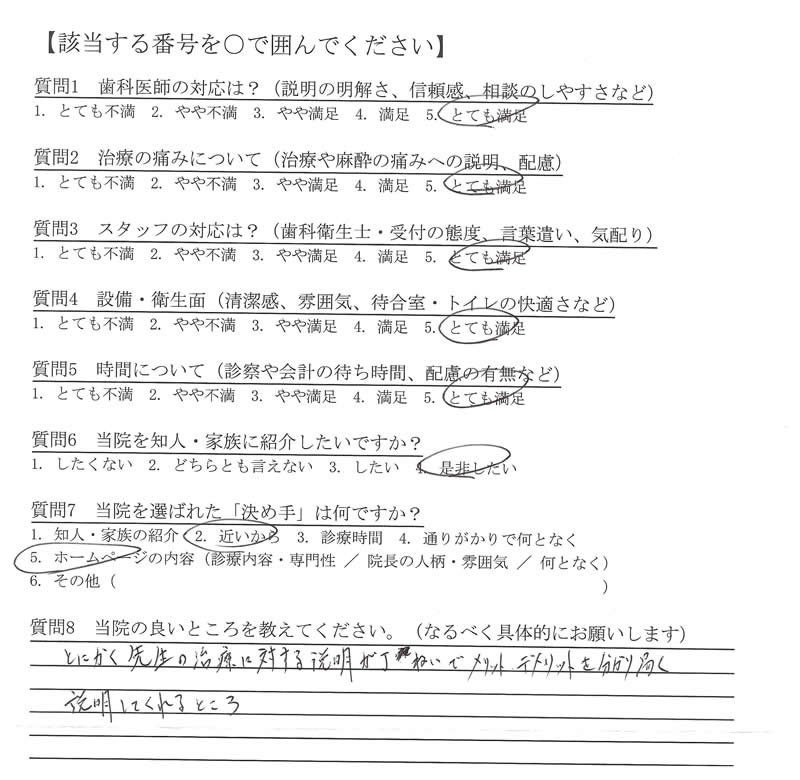 【該当する番号を〇で囲んでください】
質問1 歯科医師の対応は？（説明の明解さ、信頼感、相談のしやすさなど）
1. とても不満 2. やや不満 3. やや満足 4. 満足 5. とても満足
質問2 治療の痛みについて（治療や麻酔の痛みへの説明、配慮）
1. とても不満 2. やや不満 3. やや満足 4. 満足 5. とても満足
質問3 スタッフの対応は？（歯科衛生士・受付の態度、言葉遣い、気配り）
1. とても不満 2. やや不満 3. やや満足 4. 満足 5. とても満足
質問4 設備・衛生面（清潔感、雰囲気、待合室・トイレの快適さなど）
1. とても不満 2. やや不満 3. やや満足 4. 満足 5. とても満足
質問5 時間について（診察や会計の待ち時間、配慮の有無など）
1. とても不満 2. やや不満 3. やや満足 4. 満足 5. とても満足
質問6 当院を知人・家族に紹介したいですか？
1. したくない 2. どちらとも言えない 3. したい 4. 是非したい
質問7 当院を選ばれた「決め手」は何ですか？
1. 知人・家族の紹介 2. 近いから 3. 診療時間 4. 通りがかりで何となく
5. ホームページの内容（診療内容・専門性 ／ 院長の人柄・雰囲気 ／ 何となく）
6. その他（ ）
質問8 当院の良いところを教えてください。（なるべく具体的にお願いします）
とにかく先生の治療に対する説明が丁ねいでメリット デメリットを分かり易く
説明してくれるところ